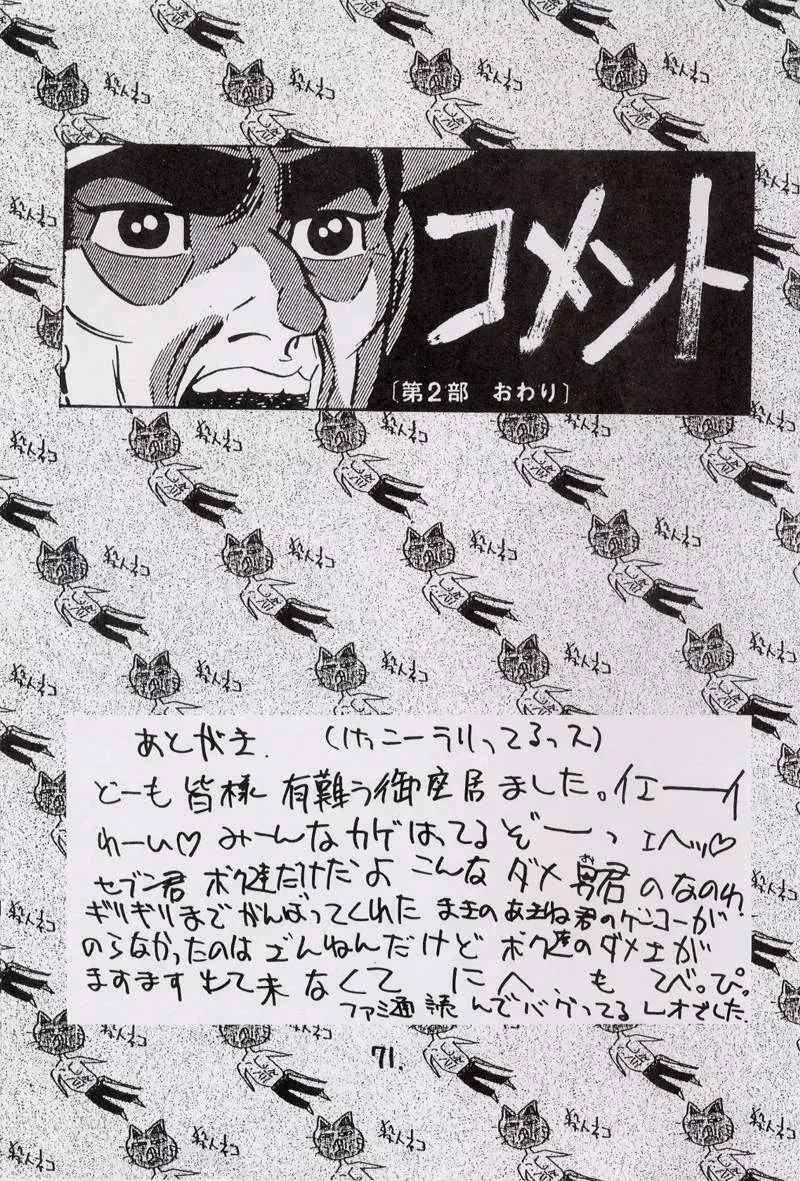 コメント
〔第2部 おわり〕
殺人ネコ
あとがき. (けっこーラリってるっス)
どーも皆様有難う御座居ました。イエーイ
わーい♡ みーんなカゲはってるぞーっ エヘッ♡
セブン君 ボク達だけだよ こんな ダメ男君のなのわ
ギリギリまでがんばってくれた まきのあきね君のゲンコーが
のらなかったのはざんねんだけど ボク達のダメさが
ますます出て来なくて に も
ファミ通読んでバグってるレオでした.
71.